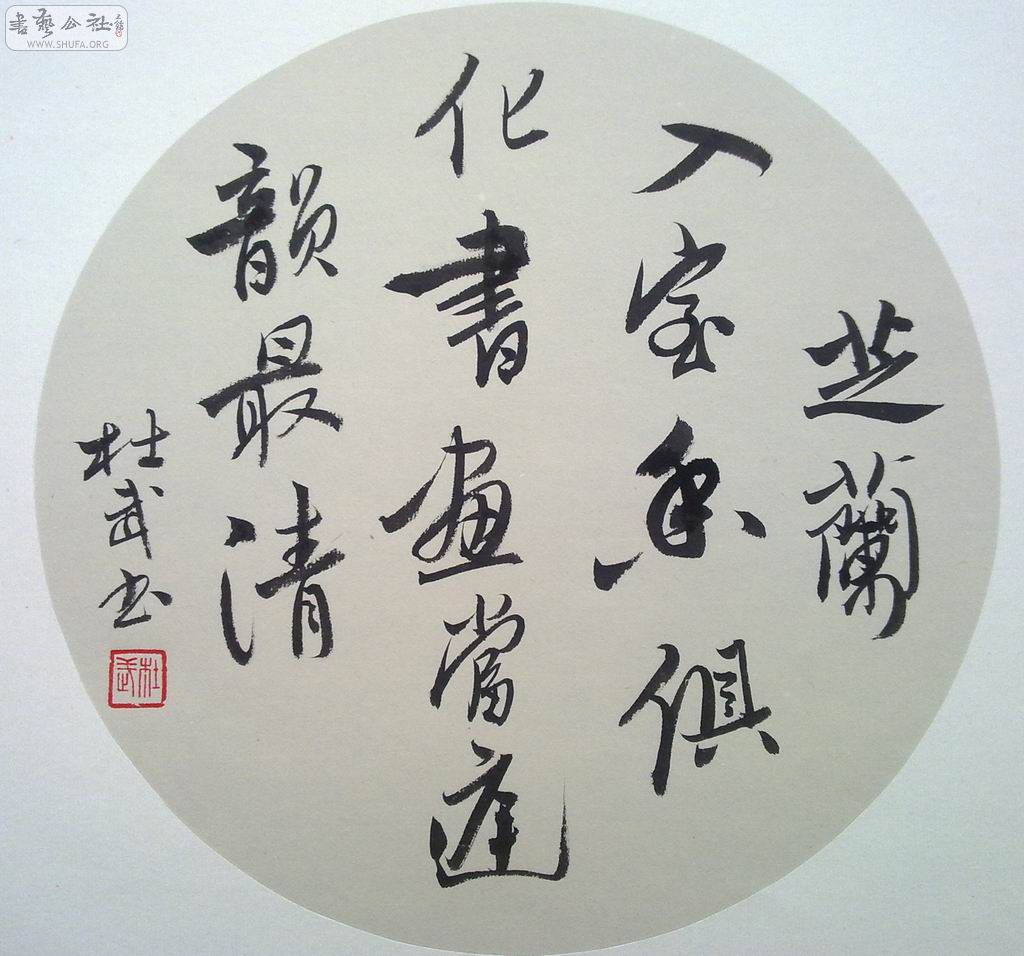 芝蘭
入室香俱
化書畫當庭
韻最清
杜武书
杜武
書藝公社
WWW.SHUFA.ORG